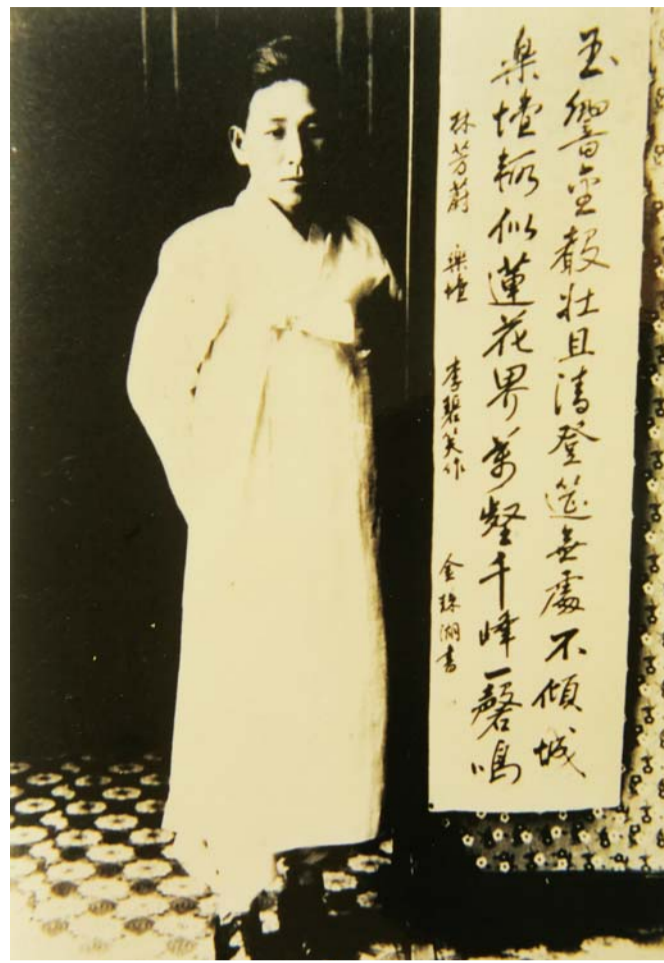 玉響金聲壯且清登筵無處不傾城
楽壇似蓮花界萬壑千峰一磬鳴
林芳蔚 楽壇 李碧笑作 金珠湖書